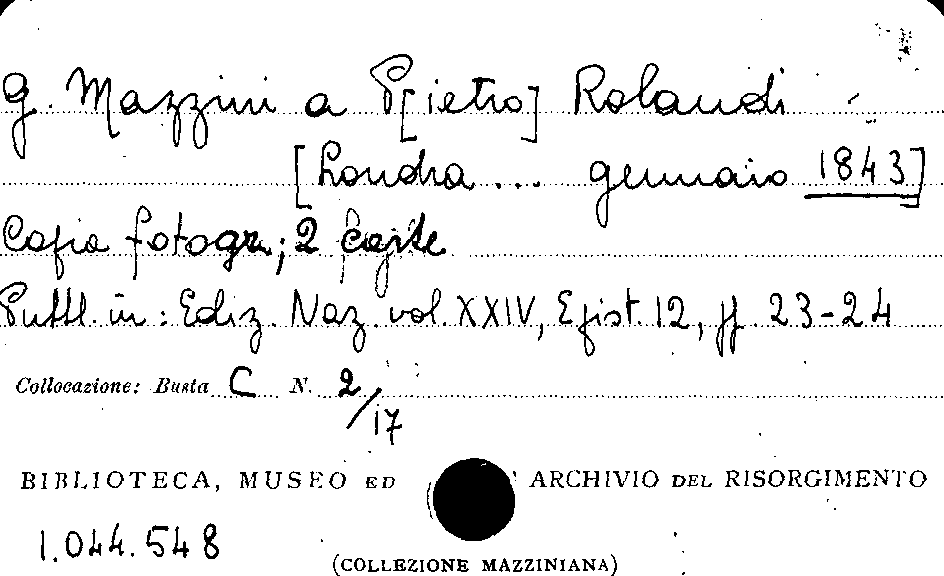 G. Mazzini a P[ietro] Rolandi -
[Londra ... gennaio 1843]
Copia fotogr.; 2 carte
Pubbl. in: Ediz. Naz. vol. XXIV, Epist. 12, pp. 23-24
Collocazione: Busta C N. 2/17
BIBLIOTECA, MUSEO ED ARCHIVIO DEL RISORGIMENTO
1.044.548
(COLLEZIONE MAZZINIANA)